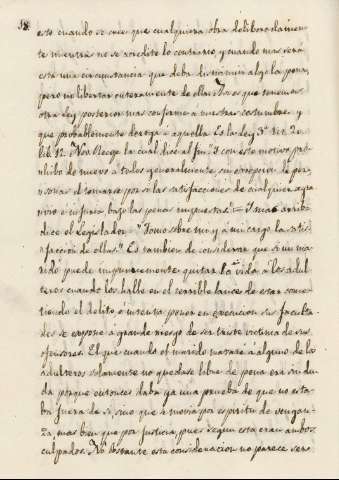 esto cuando se cree que cualquiera obra deliberadamen-
te mientras no se acredite lo contrario, y cuando mas será
esta una circunstancia que deba disminuir algo la pena,
pero no libertar enteramente de ella. Lo es que tenemos
otra ley posterior mas conforme a nuestras costumbres y
que probablemente deroga a aquella. Es la ley 3ª tit. 20
lib. 12 Nov. Recop. la cual dice al fin: "Y con este motivo pro-
hibido de nuevo a todos generalmente sin excepcion de per-
sonas el tomarse por si las satisfacciones de cualquier agra-
vio e injuria bajo las penas impuestas." = Y mas arriba
dice el Legislador "Tomo sobre mi y a mi cargo la satis-
faccion de ellas." Es tambien de considerar que si un ma-
rido puede impunemente quitar la vida a los adul-
teros cuando los halle en el terrible lance de estar come-
tiendo el delito e intenta poner en execucion sus faculta-
des se expone a grande riesgo de ser triste victima de sus
ofensores. El que cuando el marido matare a alguno de los
adulteros solamente no quedase libre de pena era sin du-
da porque entonces daba ya una prueba de que no esta-
ba fuera de si, sino que se movia por espiritu de vengan-
za, mas bien que por justicia, pues segun esta eran ambos
culpados. No obstante esta consideracion no parece ser